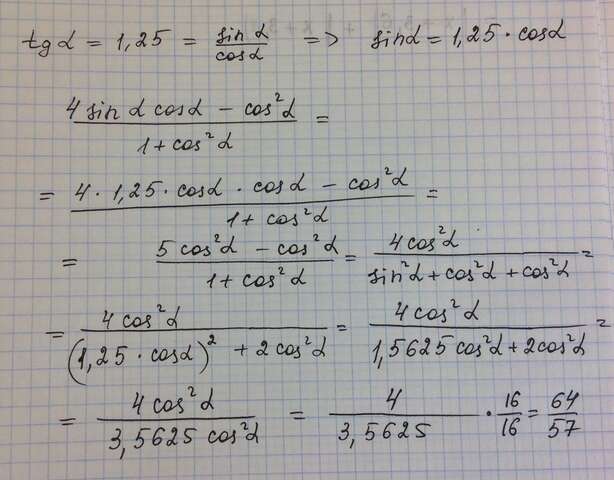 tg α = 1,25 = sin α / cos α => sin α = 1,25 · cos α
(4 sin α cos α − cos²α) / (1 + cos²α) =
= (4 · 1,25 · cos α · cos α − cos²α) / (1 + cos²α) =
= (5 cos²α − cos²α) / (1 + cos²α) = 4 cos²α / (sin²α + cos²α + cos²α) =
= 4 cos²α / ((1,25 · cos α)² + 2 cos²α) = 4 cos²α / (1,5625 cos²α + 2 cos²α) =
= 4 cos²α / (3,5625 cos²α) = 4 / 3,5625 · 16/16 = 64/57